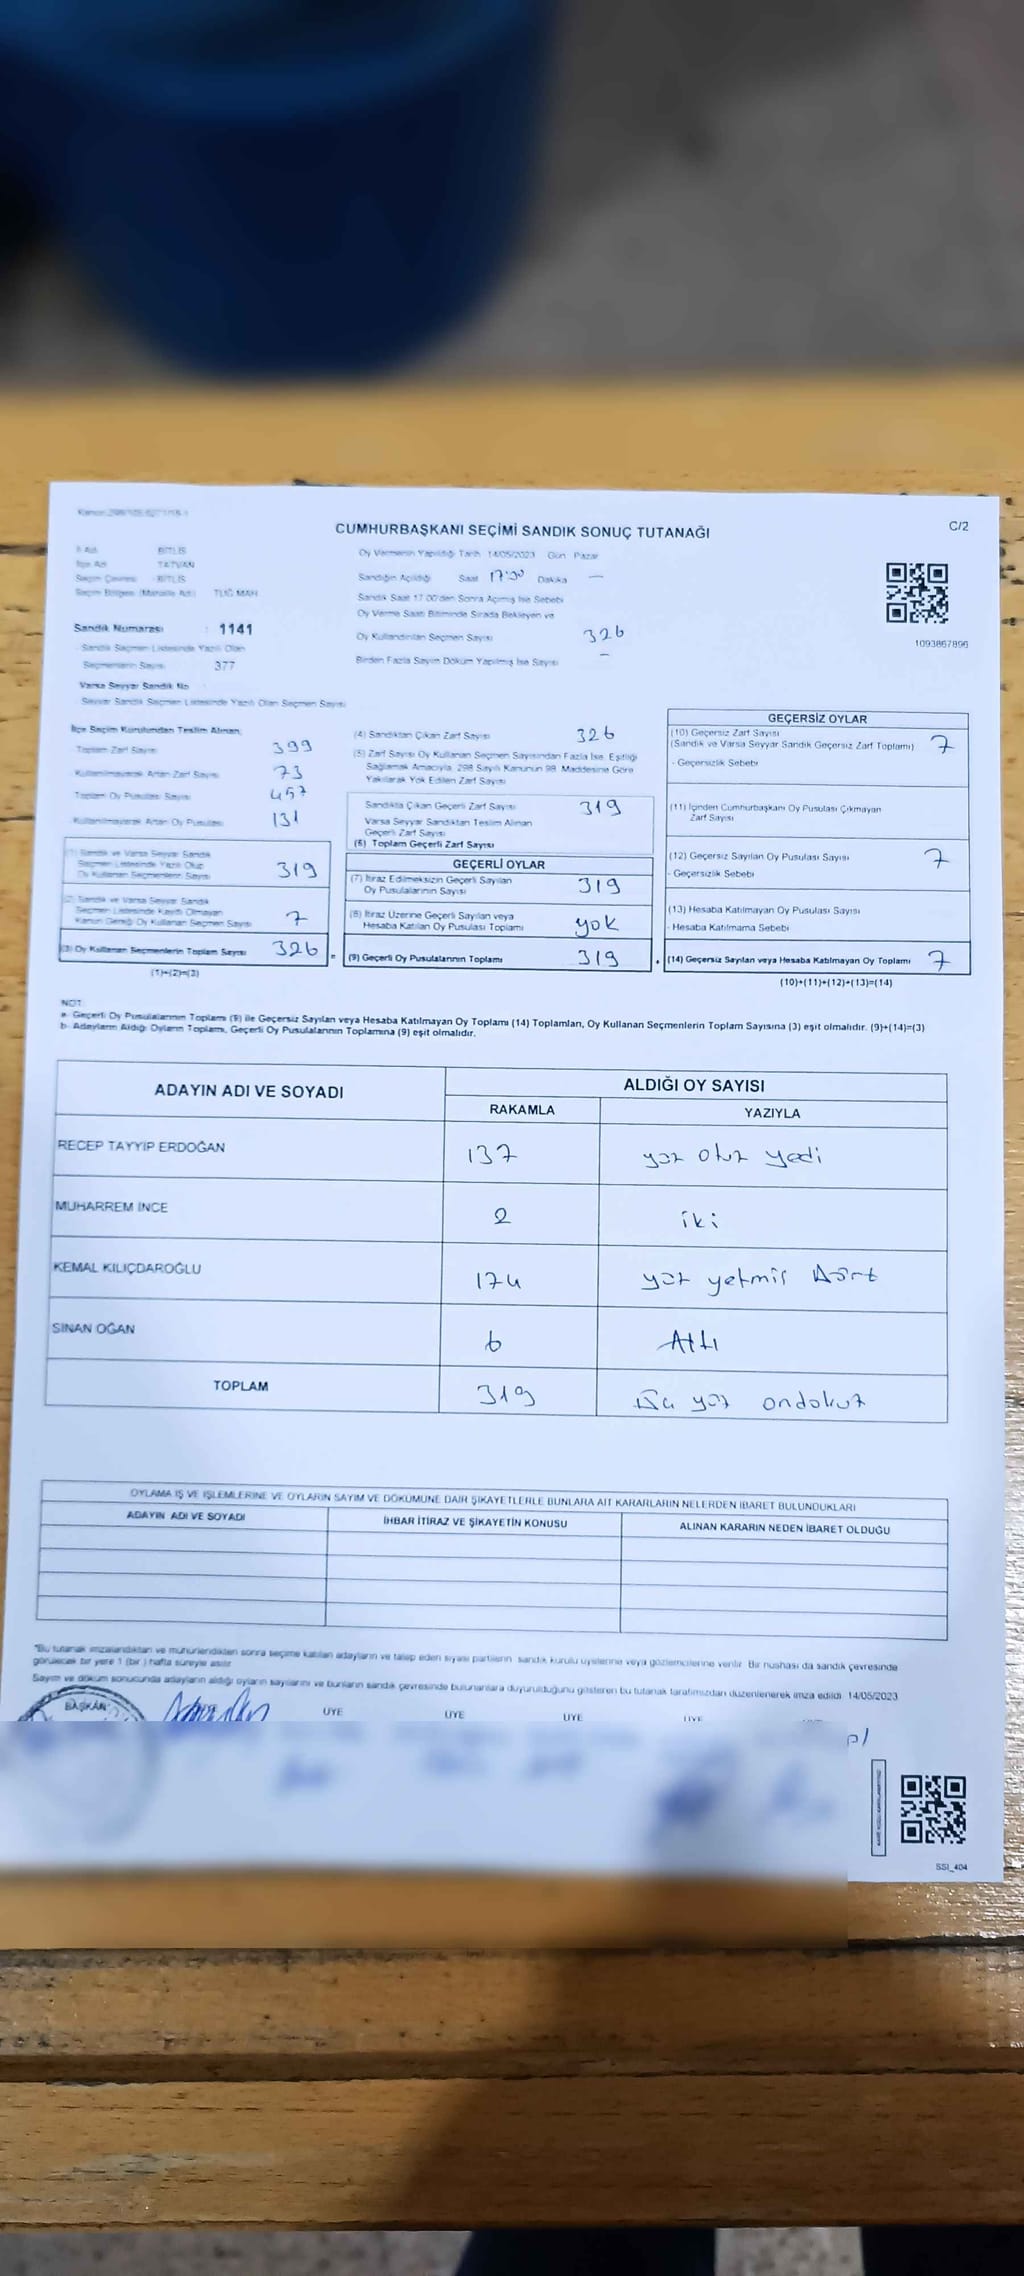 CUMHURBAŞKANI SEÇİMİ SANDIK SONUÇ TUTANAĞI
C/2
İl Adı BİTLİS
İlçe Adı TATVAN
Seçim Çevresi BİTLİS
Seçim Bölgesi (Mahalle Adı) TUĞ MAH
Sandık Numarası : 1141
Sandık Seçmen Listesinde Yazılı Olan
Seçmenlerin Sayısı 377
Varsa Seyyar Sandık No
Seyyar Sandık Seçmen Listesinde Yazılı Olan Seçmen Sayısı
Oy Vermenin Yapıldığı Tarih 14/05/2023 Gün Pazar
Sandığın Açıldığı Saat 17:00 Dakika —
Sandık Saat 17.00'den Sonra Açılmış İse Sebebi
Oy Verme Saati Bitiminde Sırada Bekleyen ve
Oy Kullandırılan Seçmen Sayısı 326
Birden Fazla Sayım Döküm Yapılmış İse Sayısı –
1093867896
İlçe Seçim Kurulundan Teslim Alınan;
Toplam Zarf Sayısı 399
Kullanılmayarak Artan Zarf Sayısı 73
Toplam Oy Pusulası Sayısı 457
Kullanılmayarak Artan Oy Pusulası 131
(1) Sandık ve Varsa Seyyar Sandık
Seçmen Listesinde Yazılı Olup
Oy Kullanan Seçmenlerin Sayısı 319
(2) Sandık ve Varsa Seyyar Sandık
Seçmen Listesinde Kayıtlı Olmayan
Kanun Gereği Oy Kullanan Seçmen Sayısı 7
(3) Oy Kullanan Seçmenlerin Toplam Sayısı 326
(1)+(2)=(3)
(4) Sandıktan Çıkan Zarf Sayısı 326
(5) Zarf Sayısı Oy Kullanan Seçmen Sayısından Fazla İse, Eşitliği
Sağlamak Amacıyla, 298 Sayılı Kanunun 98. Maddesine Göre
Yakılarak Yok Edilen Zarf Sayısı
Sandıkta Çıkan Geçerli Zarf Sayısı 319
Varsa Seyyar Sandıktan Teslim Alınan
Geçerli Zarf Sayısı
(6) Toplam Geçerli Zarf Sayısı
GEÇERLİ OYLAR
(7) İtiraz Edilmeksizin Geçerli Sayılan
Oy Pusulalarının Sayısı 319
(8) İtiraz Üzerine Geçerli Sayılan veya
Hesaba Katılan Oy Pusulası Toplamı yok
= (9) Geçerli Oy Pusulalarının Toplamı 319
GEÇERSİZ OYLAR
(10) Geçersiz Zarf Sayısı
(Sandık ve Varsa Seyyar Sandık Geçersiz Zarf Toplamı) 7
- Geçersizlik Sebebi
(11) İçinden Cumhurbaşkanı Oy Pusulası Çıkmayan
Zarf Sayısı
(12) Geçersiz Sayılan Oy Pusulası Sayısı 7
- Geçersizlik Sebebi
(13) Hesaba Katılmayan Oy Pusulası Sayısı
- Hesaba Katılmama Sebebi
+ (14) Geçersiz Sayılan veya Hesaba Katılmayan Oy Toplamı 7
(10)+(11)+(12)+(13)=(14)
NOT
a- Geçerli Oy Pusulalarının Toplamı (9) ile Geçersiz Sayılan veya Hesaba Katılmayan Oy Toplamı (14) Toplamları, Oy Kullanan Seçmenlerin Toplam Sayısına (3) eşit olmalıdır. (9)+(14)=(3)
b- Adayların Aldığı Oyların Toplamı, Geçerli Oy Pusulalarının Toplamına (9) eşit olmalıdır.
ADAYIN ADI VE SOYADI ALDIĞI OY SAYISI
RAKAMLA YAZIYLA
RECEP TAYYİP ERDOĞAN 137 yüz otuz yedi
MUHARREM İNCE 2 iki
KEMAL KILIÇDAROĞLU 174 yüz yetmiş dört
SİNAN OĞAN 6 Altı
TOPLAM 319 üç yüz ondokuz
OYLAMA İŞ VE İŞLEMLERİNE VE OYLARIN SAYIM VE DÖKÜMÜNE DAİR ŞİKAYETLERLE BUNLARA AİT KARARLARIN NELERDEN İBARET BULUNDUKLARI
ADAYIN ADI VE SOYADI İHBAR İTİRAZ VE ŞİKAYETİN KONUSU ALINAN KARARIN NEDEN İBARET OLDUĞU
*Bu tutanak imzalandıktan ve mühürlendikten sonra seçime katılan adayların ve talep eden siyasi partilerin sandık kurulu üyelerine veya gözlemcilerine verilir. Bir nüshası da sandık çevresinde
görülecek bir yere 1 (bir) hafta süreyle asılır.
Sayım ve döküm sonucunda adayların aldığı oyların sayılarını ve bunların sandık çevresinde bulunanlara duyurulduğunu gösteren bu tutanak tarafımızdan düzenlenerek imza edildi. 14/05/2023
BAŞKAN ÜYE ÜYE ÜYE ÜYE
SSI_404